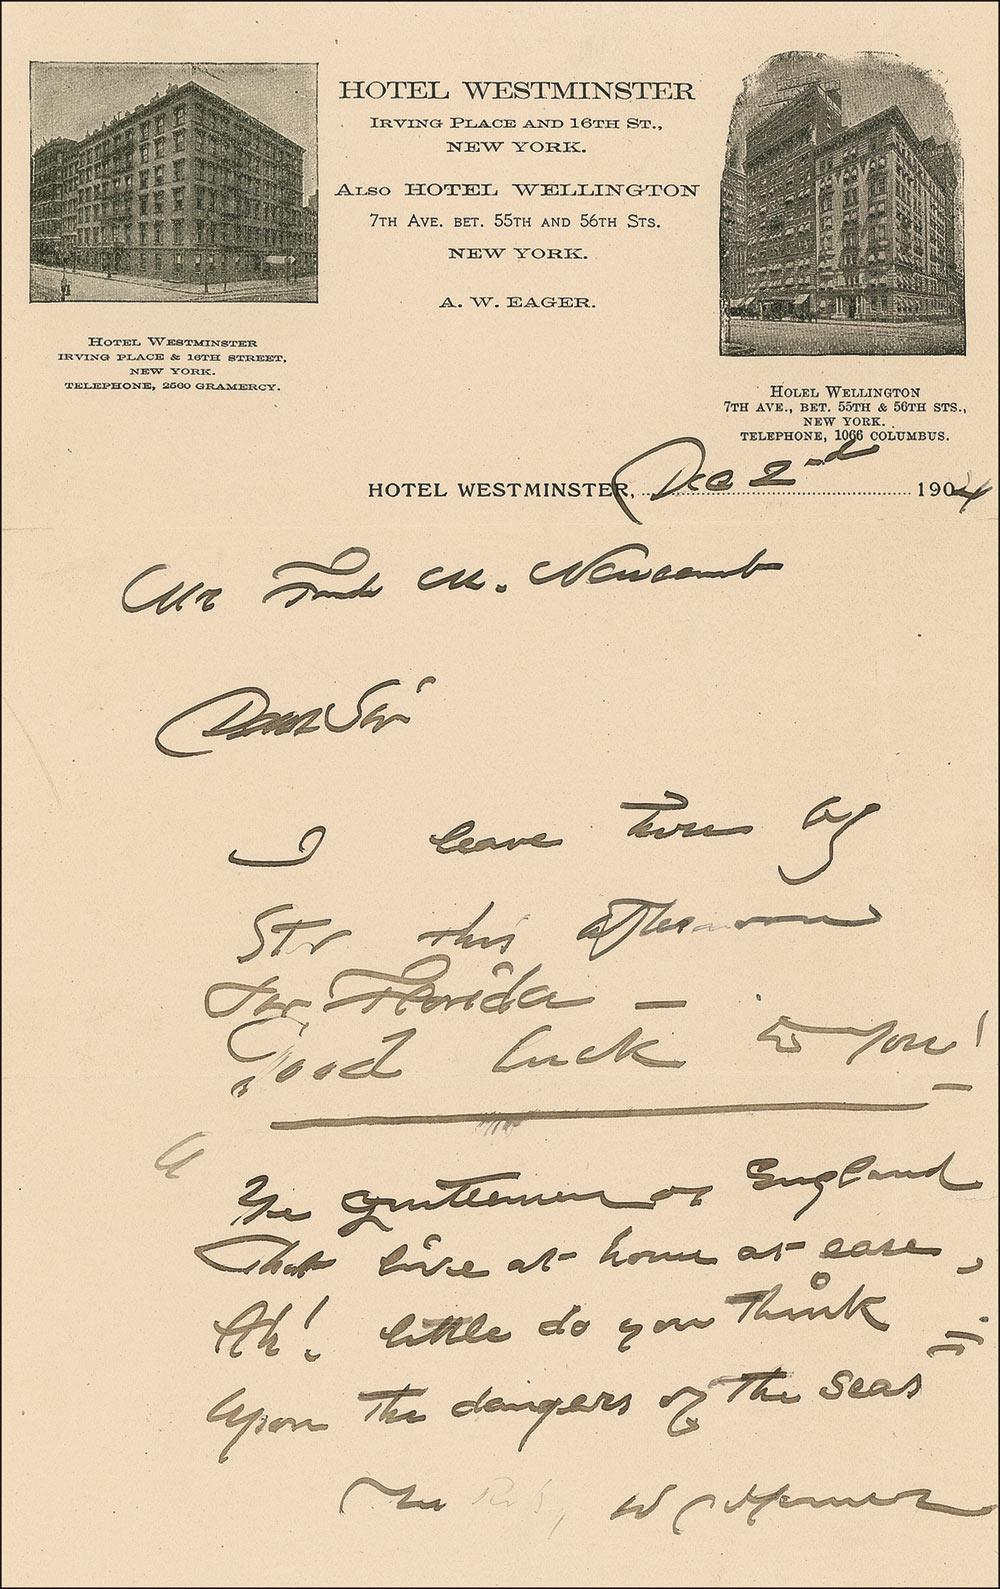 HOTEL WESTMINSTER
IRVING PLACE AND 16TH ST.,
NEW YORK.
ALSO HOTEL WELLINGTON
7TH AVE. BET. 55TH AND 56TH STS.
NEW YORK.
A. W. EAGER.
HOTEL WESTMINSTER
IRVING PLACE & 16TH STREET,
NEW YORK.
TELEPHONE, 2560 GRAMERCY.
HOLEL WELLINGTON
7TH AVE., BET. 55TH & 56TH STS.,
NEW YORK.
TELEPHONE, 1066 COLUMBUS.
HOTEL WESTMINSTER, Dec 2nd 1904
Mr Frank M. Newcomb
Dear Sir
I leave here by
Str this afternoon
For Florida —
Good luck to you! —
"Ye gentlemen of England
That live at home at ease,
Ah! little do you think
Upon the dangers of the Seas
The